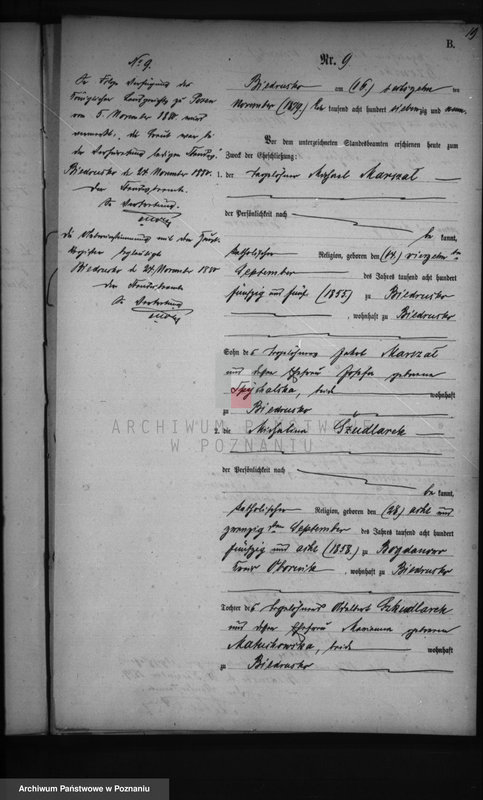 19
B.
No 9.
Nr. 9
Biedrusko am (16) sechszehn ten
November (1879) Ein tausend acht hundert siebenzig und neun.
Vor dem unterzeichneten Standesbeamten erschienen heute zum
Zweck der Eheschließung:
1. der Tagelöhner Michael Marszał
der Persönlichkeit nach
be kannt,
katholischer Religion, geboren den (14.) vierzehn ten
September des Jahres tausend acht hundert
fünfzig und fünf (1855) zu Biedrusko
, wohnhaft zu Biedrusko
Sohn des Tagelöhners Jakob Marszał
und dessen Ehefrau Josefa geborene
Spychalska, beide wohnhaft
zu Biedrusko
2. die Michalina Szudlarek
der Persönlichkeit nach
be kannt,
katholischer Religion, geboren den (28) acht und
zwanzig sten September des Jahres tausend acht hundert
fünfzig und acht (1858) zu Bogdanowo
Kreis Obornik, wohnhaft zu Biedrusko
Tochter des Tagelöhners Adalbert Szkudlarek
und dessen Ehefrau Marianna geborene
beide wohnhaft
zu Biedrusko
Königlichen Landgerichts zu Posen
vom 5. November 1880 wird
vermerkt, die Braut war bei
der Verheiratung ledigen Standes.
Biedrusko d. 24. November 1880.
Der Standesbeamte.
In Vertretung.
Die Uebereinstimmung mit dem Haupt-
Register beglaubigt
Biedrusko d. 24. November 1880
Der Standesbeamte
In Vertretung
ARCHIWUM PAŃSTWOWE
W POZNANIU
Archiwum Państwowe w Poznaniu